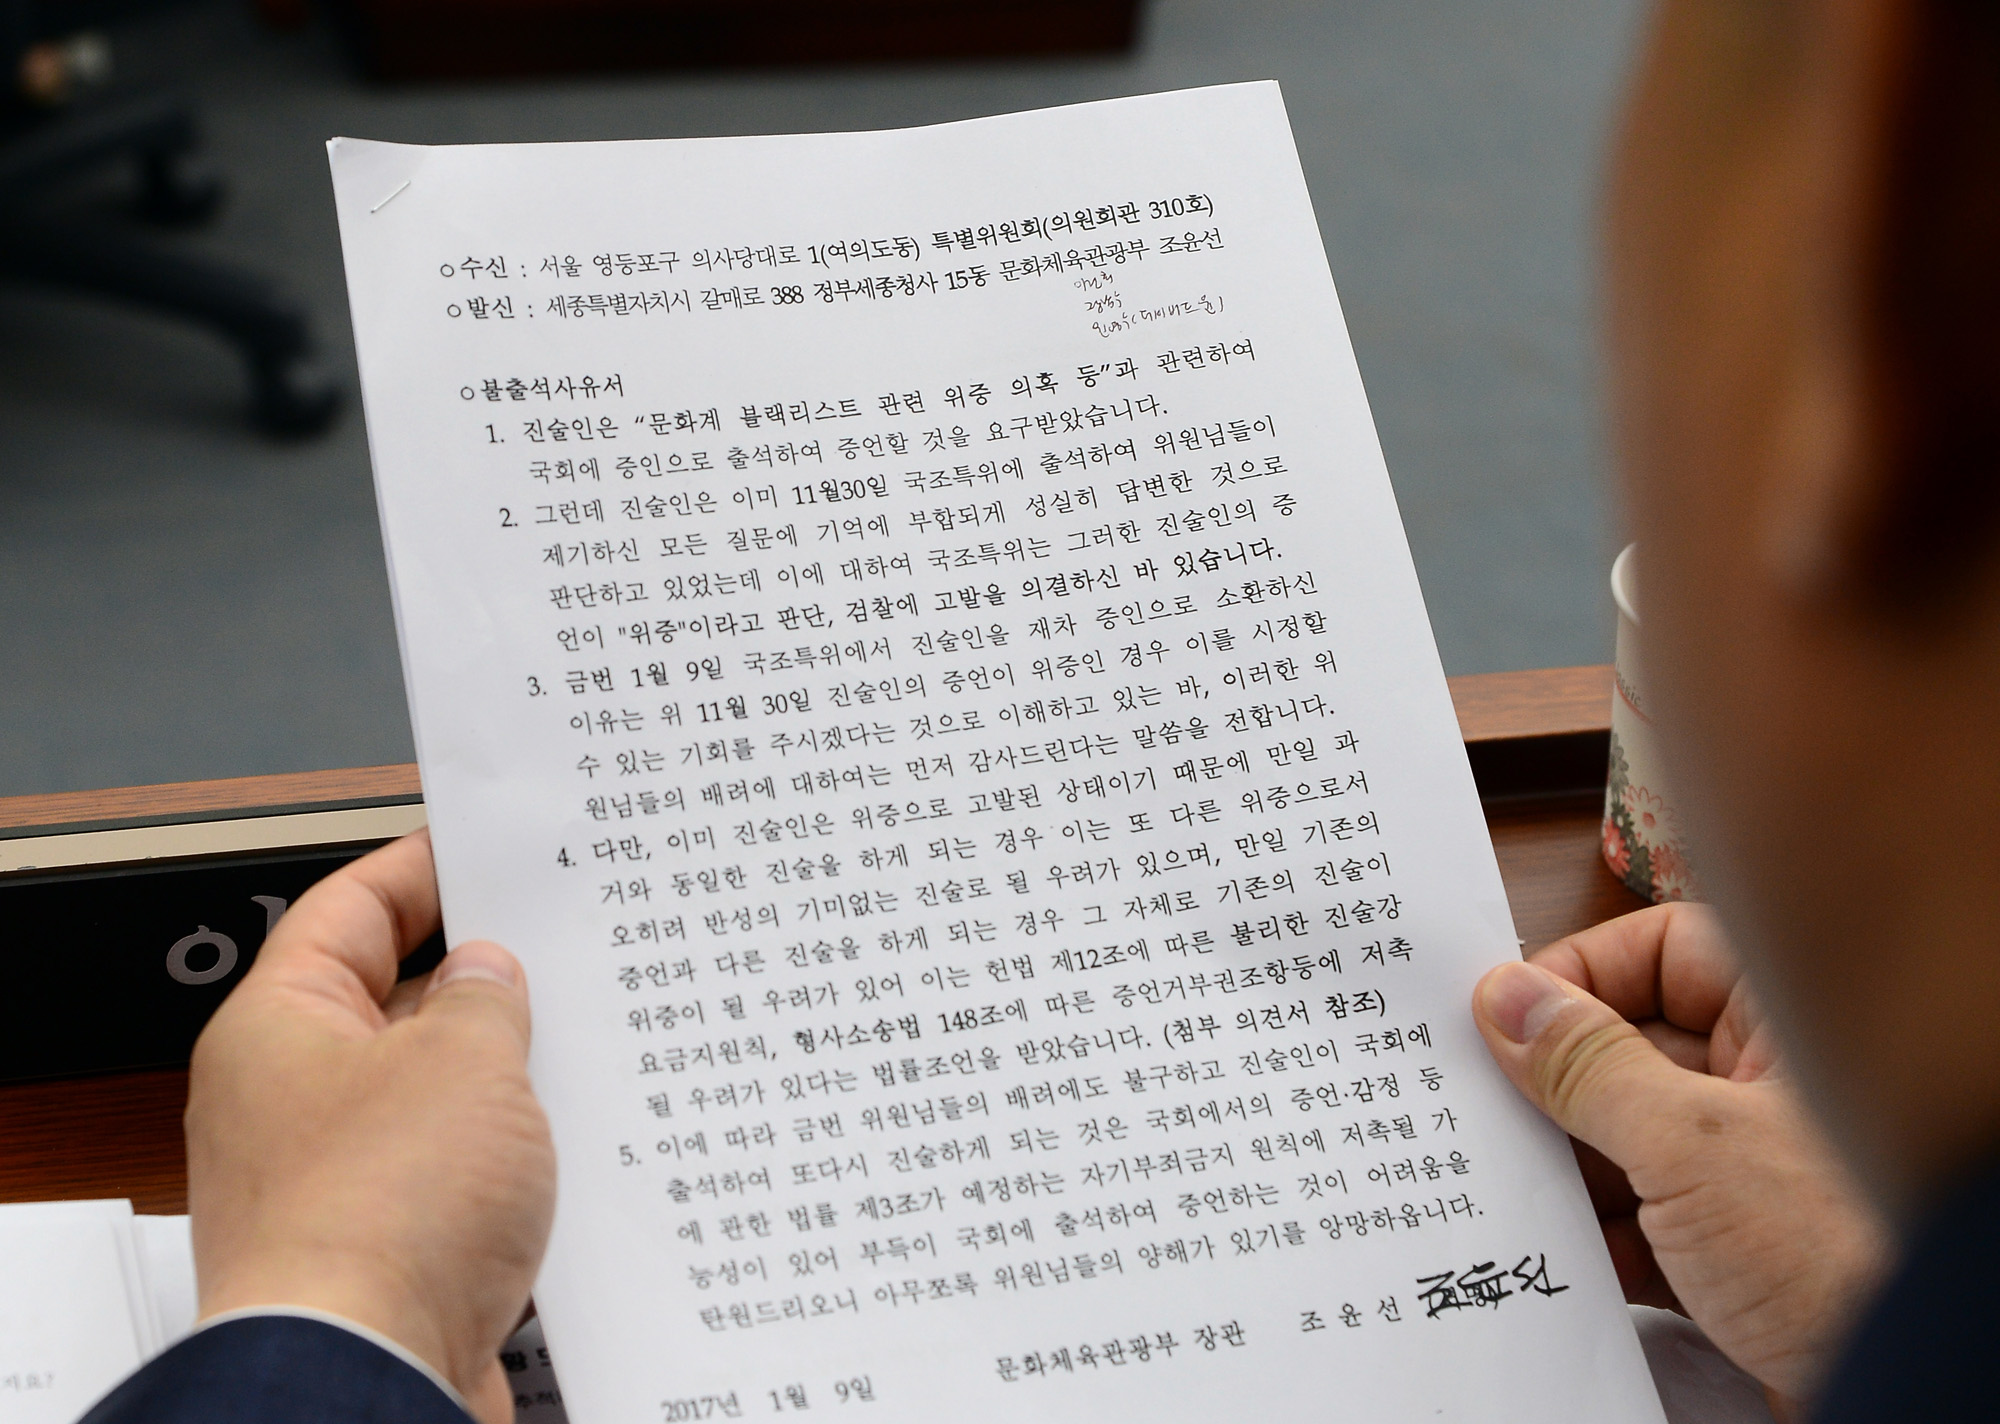 ○수신 : 서울 영등포구 의사당대로 1(여의도동) 특별위원회(의원회관 310호)
○발신 : 세종특별자치시 갈매로 388 정부세종청사 15동 문화체육관광부 조윤선
(데이비드 윤)
○불출석사유서
1. 진술인은 “문화계 블랙리스트 관련 위증 의혹 등”과 관련하여
국회에 증인으로 출석하여 증언할 것을 요구받았습니다.
2. 그런데 진술인은 이미 11월30일 국조특위에 출석하여 위원님들이
제기하신 모든 질문에 기억에 부합되게 성실히 답변한 것으로
판단하고 있었는데 이에 대하여 국조특위는 그러한 진술인의 증
언이 "위증"이라고 판단, 검찰에 고발을 의결하신 바 있습니다.
3. 금번 1월 9일 국조특위에서 진술인을 재차 증인으로 소환하신
이유는 위 11월 30일 진술인의 증언이 위증인 경우 이를 시정할
수 있는 기회를 주시겠다는 것으로 이해하고 있는 바, 이러한 위
원님들의 배려에 대하여는 먼저 감사드린다는 말씀을 전합니다.
4. 다만, 이미 진술인은 위증으로 고발된 상태이기 때문에 만일 과
거와 동일한 진술을 하게 되는 경우 이는 또 다른 위증으로서
오히려 반성의 기미없는 진술로 될 우려가 있으며, 만일 기존의
증언과 다른 진술을 하게 되는 경우 그 자체로 기존의 진술이
위증이 될 우려가 있어 이는 헌법 제12조에 따른 불리한 진술강
요금지원칙, 형사소송법 148조에 따른 증언거부권조항등에 저촉
될 우려가 있다는 법률조언을 받았습니다. (첨부 의견서 참조)
5. 이에 따라 금번 위원님들의 배려에도 불구하고 진술인이 국회에
출석하여 또다시 진술하게 되는 것은 국회에서의 증언·감정 등
에 관한 법률 제3조가 예정하는 자기부죄금지 원칙에 저촉될 가
능성이 있어 부득이 국회에 출석하여 증언하는 것이 어려움을
탄원드리오니 아무쪼록 위원님들의 양해가 있기를 앙망하옵니다.
문화체육관광부 장관 조 윤 선 조윤선
2017년 1월 9일